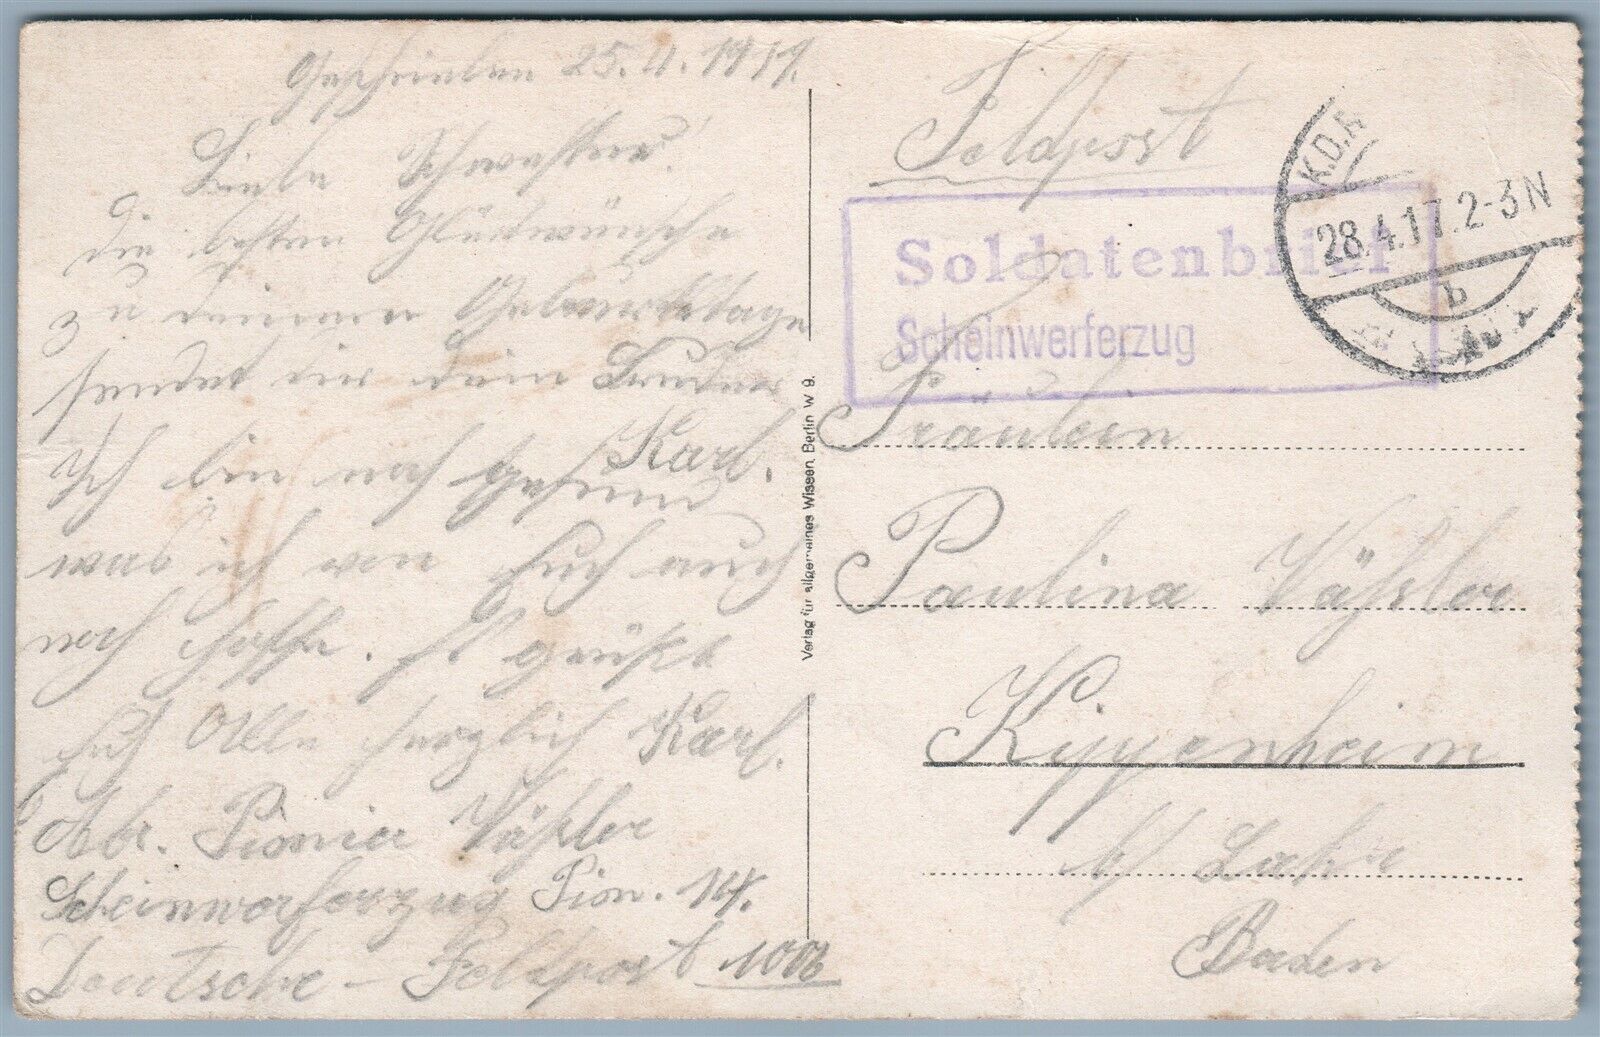 Geschrieben 25.4.1917.
Liebe Schwester!
die besten Glückwünsche
zu deinem Geburtstage
sendet dir dein Bruder
Karl.
Ich bin noch gesund
was ich von Euch auch
noch hoffe. Es grüßt
Euch Alle herzlich Karl.
Abs. Pionier Väßler
Scheinwerferzug Pion.
Deutsche - Feldpost 1006
Verlag für allgemeines Wissen, Berlin W 9.
Feldpost
Soldatenbrief
Scheinwerferzug
K.D.F
28.4.17.2-3N
b
Fräulein
Paulina Väßler
Kippenheim
b/ Lahr
Baden